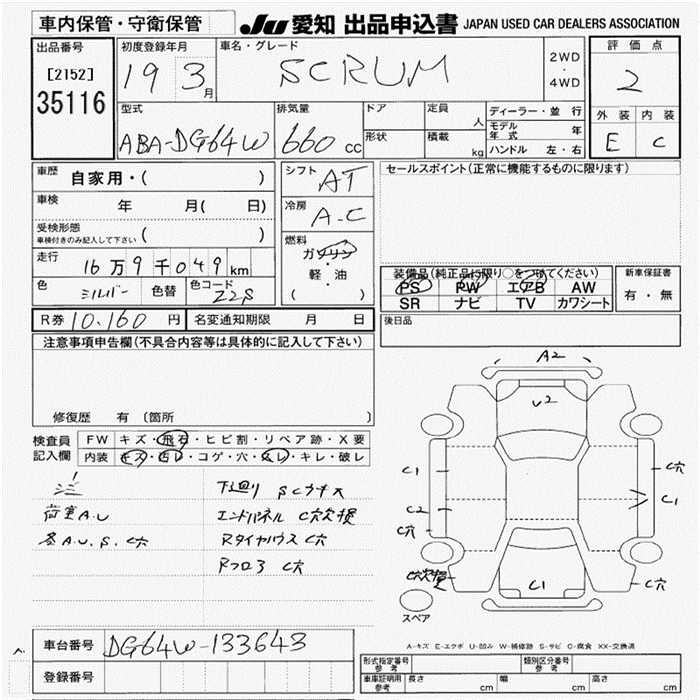 車内保管・守衛保管
JU 愛知 出品申込書 JAPAN USED CAR DEALERS ASSOCIATION
出品番号
[2152]
35116
初度登録年月
19 3月
車名・グレード
SCRUM
2WD
・
4WD
評価点
2
外装 内装
E C
型式
ABA-DG64W
排気量
660 cc
ドア
形状
定員 人
積載 kg
ディーラー・並行
モデル年式 年
ハンドル 左・右
車歴 自家用・( )
車検 年 月( 日)
受検形態
車検付きのみ記入して下さい ( )
走行 16万9千049km
色 シルバー 色替 色コード Z2S
シフト AT
冷房 A-C
燃料
ガソリン
・
軽・油
( )
セールスポイント(正常に機能するものに限ります)
装備品(純正品に限り○をつけてください)
PS PW エアB AW
SR ナビ TV カワシート
新車保証書
有・無
R券 10,160円 名変通知期限 月 日
後日品
注意事項申告欄(不具合内容等は具体的に記入して下さい)
修復歴 有 〔箇所 〕
検査員記入欄
FW キズ・飛石・ヒビ割・リペア跡・X要
内装 キズ・汚レ・コゲ・穴・スレ・キレ・破レ
荷室A.U
下廻り SCウキ大
エンドパネル C穴穴損
RタイヤハウスC穴
Rフロア C穴
A2
U2
C1
C穴
C2
C1
C穴
C穴穴損
C1
C穴
スペア
A-キズ E-エクボ U-凹み W-補修跡 S-サビ C-腐食 XX-交換済
車台番号 DG64W-133643
登録番号
形式指定番号 参考
類別区分番号 参考
車庫証明用 参考 長さ cm 幅 cm 高さ cm